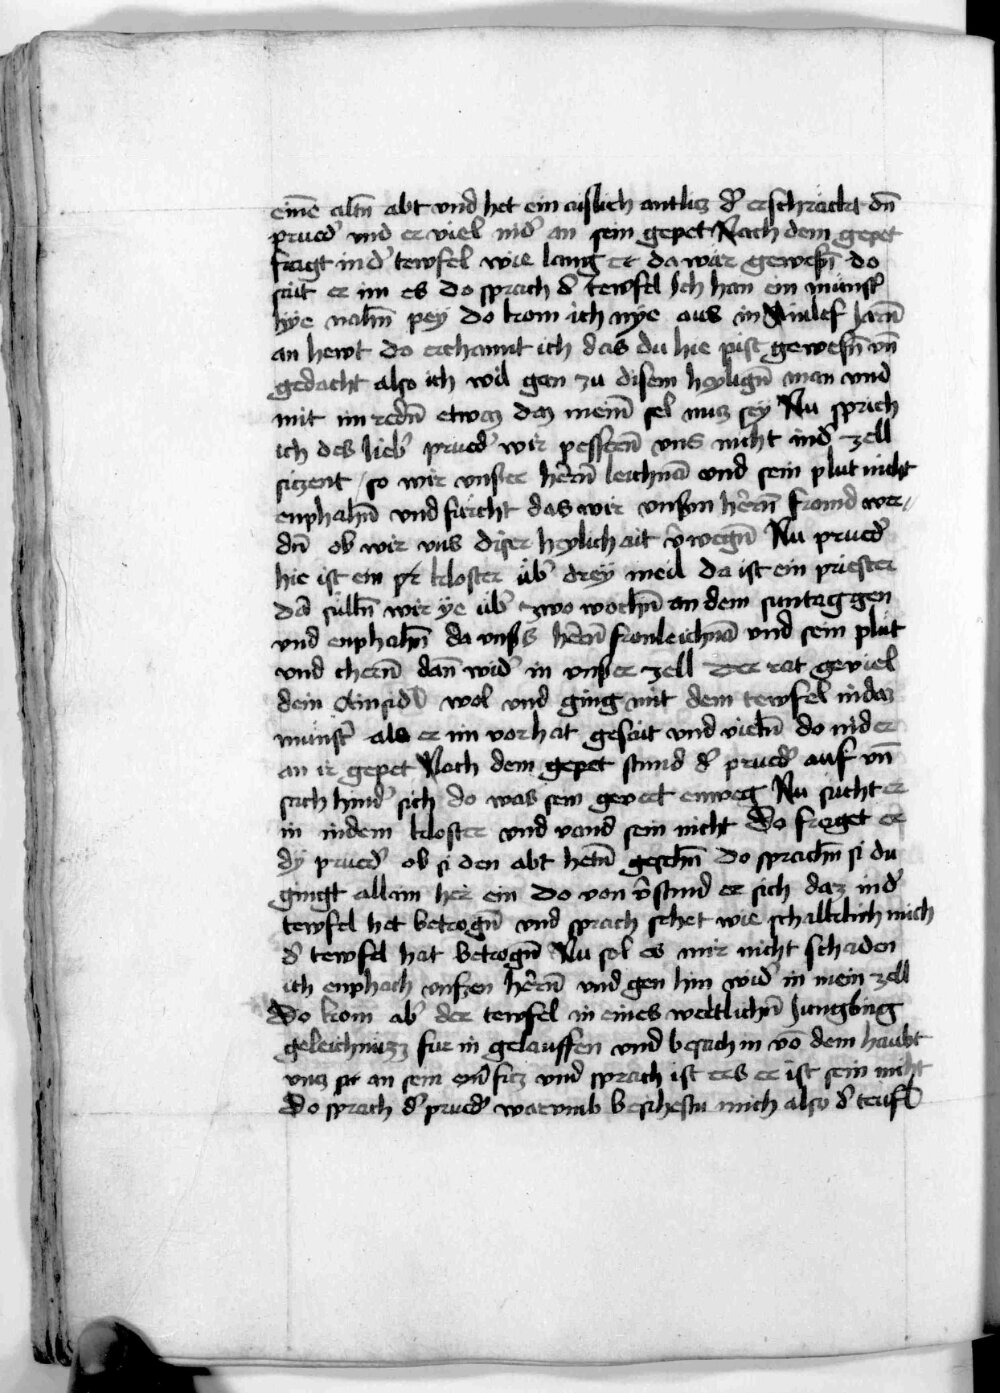 eine͂ altn̄ abt vnd het ein aislich antlicz d᷑ erschräckt dn̄
prued᷑ vnd er viel nid᷑ an sein gepet Nach dem gepet
fragt in d᷑ tewfel wie lang er da wär gewesn̄ do
sait er im es Do sprach d᷑ tewfel Ich han ein münst᷑
hye nahn̄ pey do kom ich nye aus in Ainlef Jarn̄
an hewt do erchannt ich das du hie pist gewesn̄ vn̄
gedacht also ich wil gen zu disem heylign̄ man vnd
mit im redn̄ etwaz daz meinr̄ sel nucz sey Nu sprich
ich des lieb᷑ prued᷑ wir pessern̄ vns nicht in d᷑ zell
siczent / so wir vnser herrn̄ leichnā vnd sein plut nicht
enphahn̄ vnd fürcht das wir vnserm herrn̄ fromd wer//
dn̄ ob wir vns diser heylichait v᷑wegn̄ Nu prued᷑
hie ist ein pr kloster üb᷑ drey meil da ist ein priester
Da sülln̄ wir ye üb᷑ zwo wochn̄ an dem suntag gen
vnd enphahn̄ da vnss herrn̄ fronleichnā vnd sein plüt
vnd chern̄ dan̄ wid᷑ in vnser zell Der rat geviel
dem Ainsidl wol vnd ging mit dem tewfel in daz
münst᷑ als er im vor hat gesait vnd vieln̄ do nider
an ir gepet Nach dem gepet stund d᷑ prued᷑ auf vn̄
sach hind᷑ sich do was sein gevert enweg Nu sucht er
in in dem kloster vnd vand sein nicht Do fraget er
dy prued᷑ ob si den abt hetn̄ gesehn̄ Do sprachn̄ si du
gingt allain her ein Do von v᷑stund er sich daz in d᷑
tewfel het betrogn̄ vnd sprach sehet wie schalklich mich
d᷑ tewfel hat betrogn̄ Nu sol es mir nicht schaden
ich enphach vnsern herrn̄ vnd gen hin wid᷑ in mein zell
Do kom ab᷑ der tewfel in eines weltlichn̄ Jungling
geleichnüzz fur in gelauffen vnd besach in vō dem haubt
vncz an sein fūs vnd sprach ist ers er ist sein nicht
Do sprach d᷑ prued᷑ warumb besihestu mich also d᷑ teufl